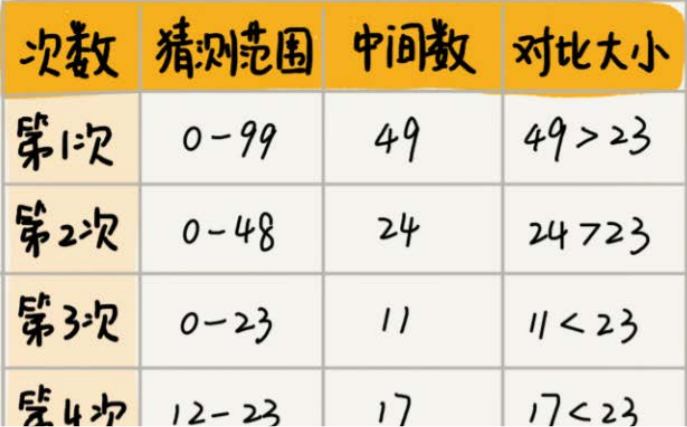 次数 猜测范围 中间数 对比大小
第1次 0-99 49 49>23
第2次 0-48 24 24>23
第3次 0-23 11 11<23
第4次 12-23 17 17<23